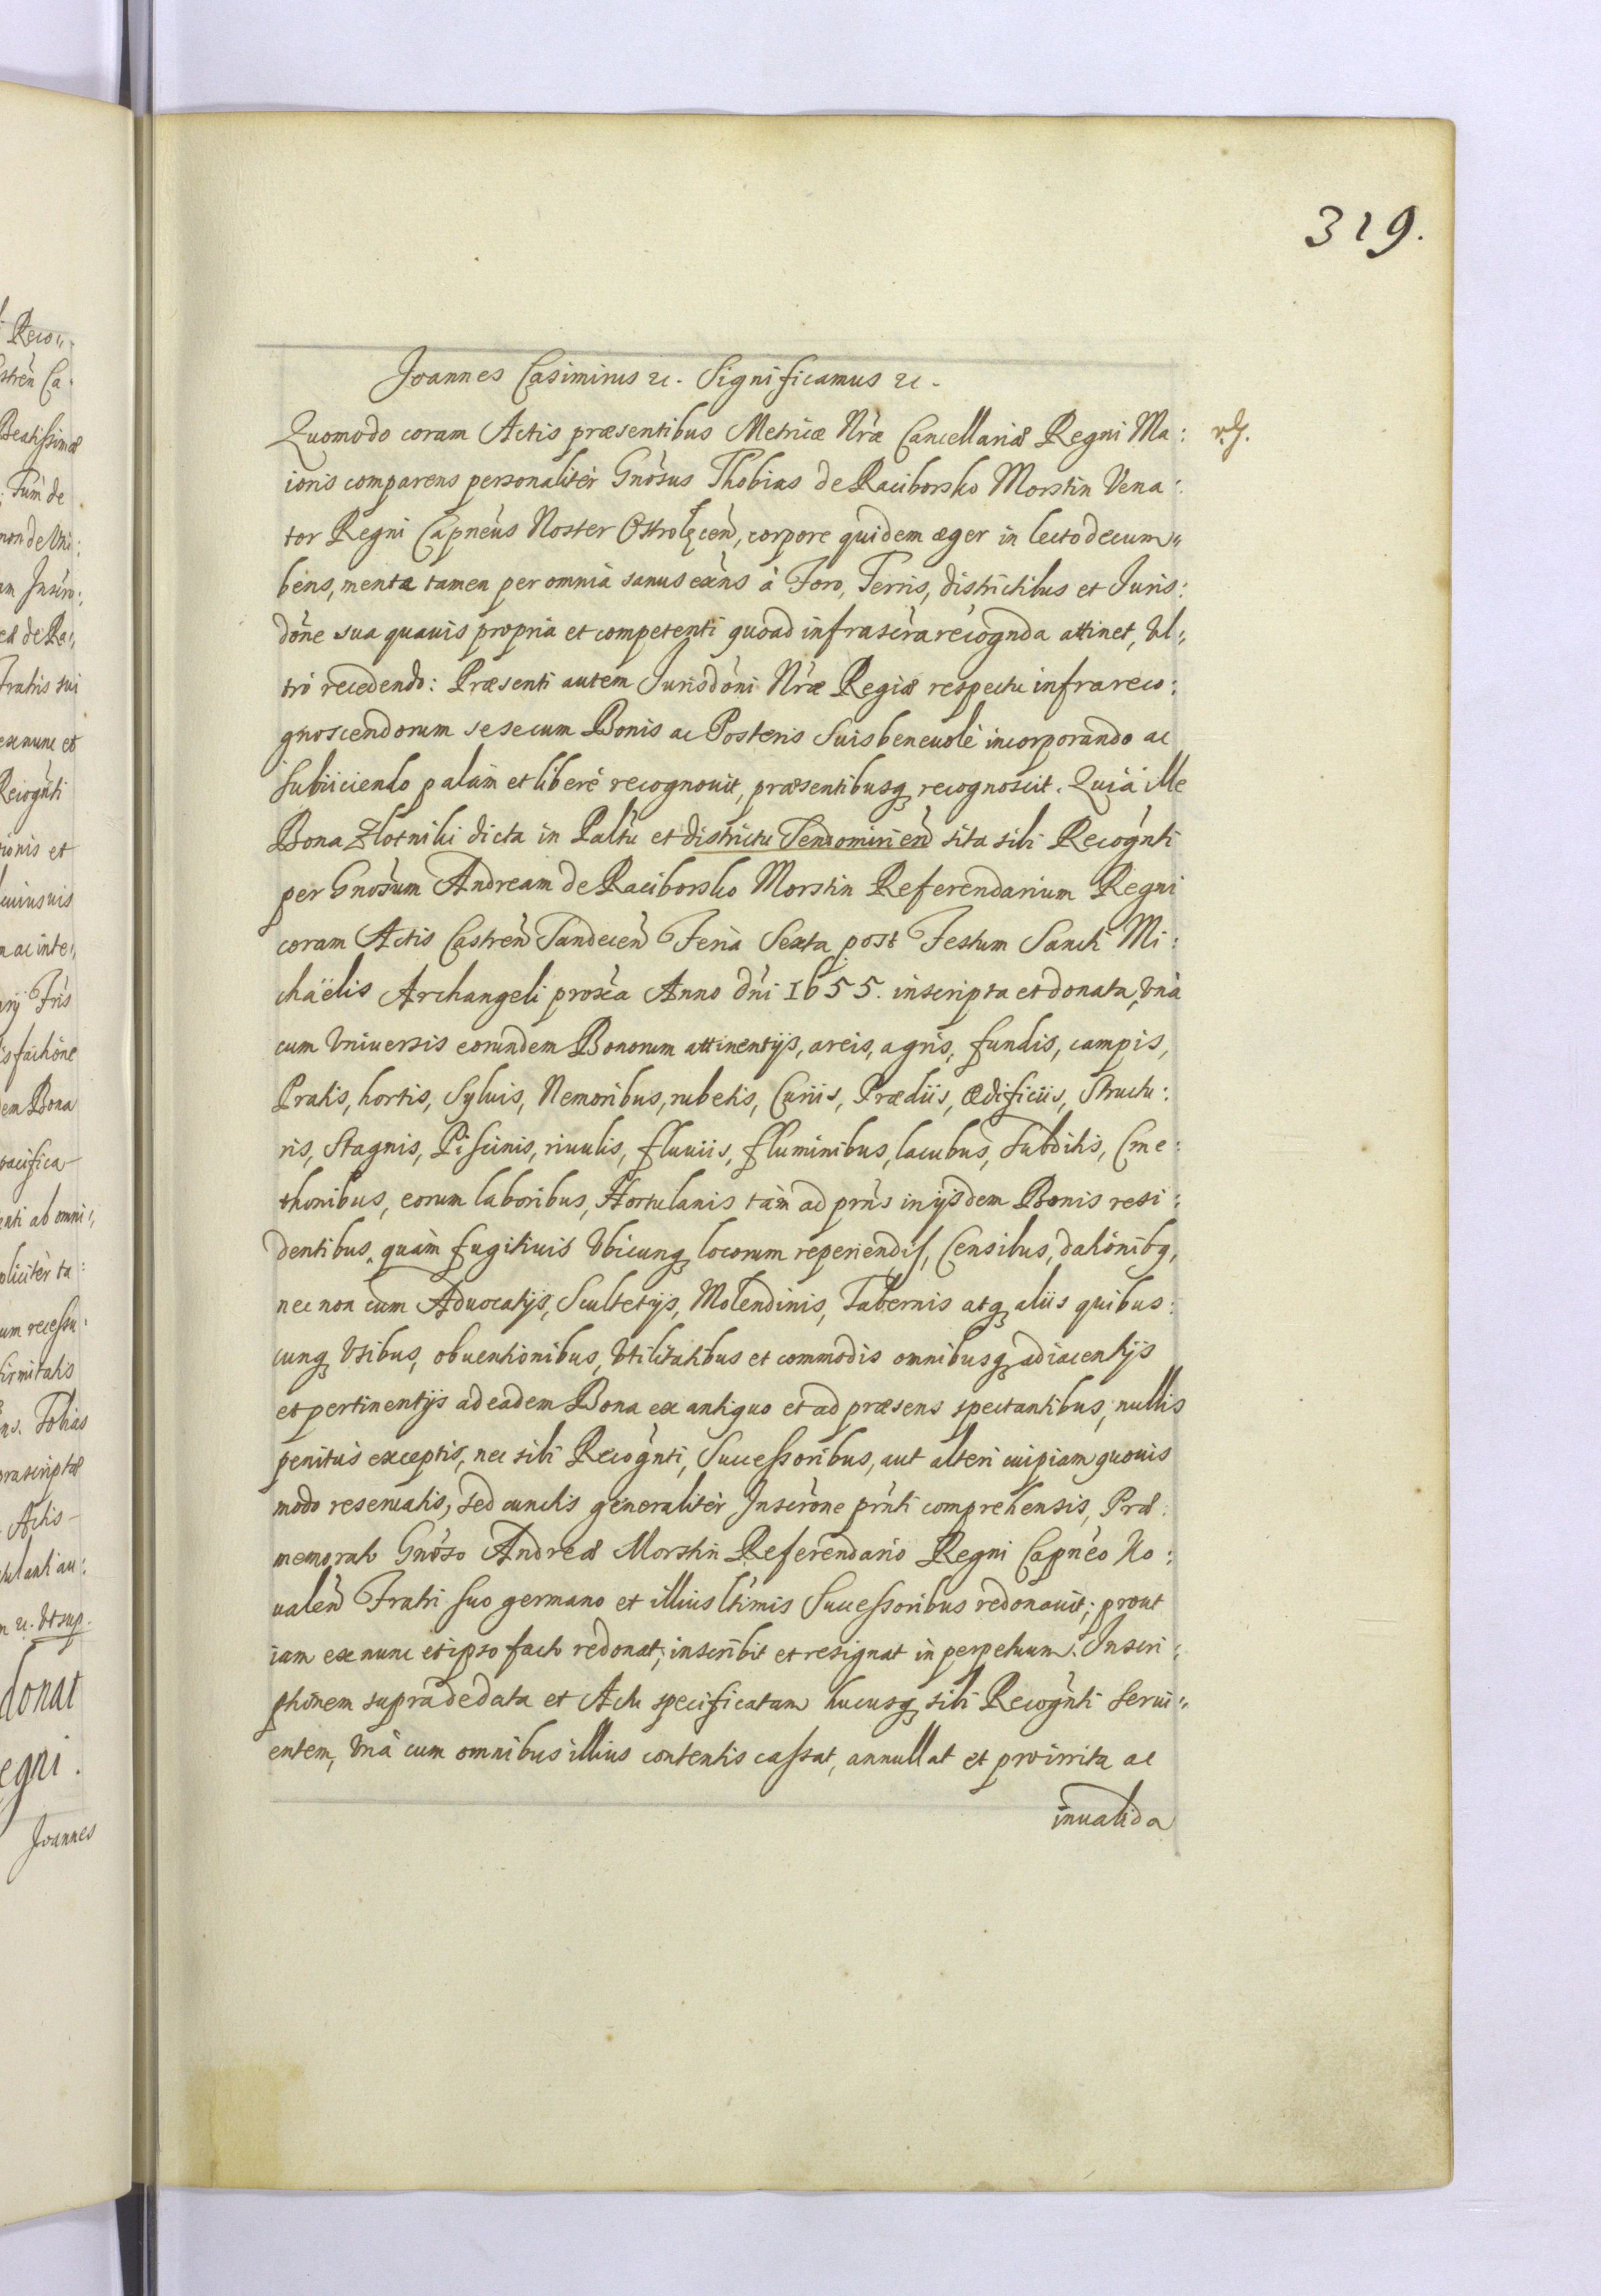 319.
Joannes Casimirus etc. Significamus etc.
Quomodo coram Actis præsentibus Metricæ Nr̃æ Cancellariæ Regni Ma:
ioris comparens personalitèr Gnõsus Thobias de Raciborsko Morstin Vena:
tor Regni Capneùs Noster Ostrolęceñ, corpore quidem æger in lecto decum„
bens, mente tamen per omnia sanus exñs à Foro, Terris, districtibus et Juris:
dõne sua quauis propria et competenti quoad infrascr̃a recognda attinet, Vl„
trò recedendo: Præsenti autem Jurisdõni Nr̃æ Regiæ respectu infrareco:
gnoscendorum sese cum Bonis ac Posteris Suis beneuolè incorporando ac
Subiiciendo palàm et liberè recognouit, præsentibusq; recognoscit. Quià ille
Bona Zlotniki dicta in Paltũ et districtu Sendomirień sita sibi Recogñti
per Gnõsum Andream de Raciborsko Morstin Referendarium Regni
coram Actis Castreñ Sandeceñ Feria Sexta post Festum Sancti Mi:
chäelis Archangeli proxĩa Anno dñi 1655. inscripta et donata, Vnà
cum Vniuersis eorundem Bonorum attinentijs, areis, agris, fundis, campis,
Pratis, hortis, Syluis, Nemoribus, rubetis, Curiis, Prædiis, ædificiis, Structu:
ris, Stagnis, Piscinis, riuulis, fluuiis, fluminibus, lacubus, Subditis, Cme:
thonibus, eorum laboribus, Hortulanis tàm ad prñs in ijsdem Bonis resi:
dentibus, quàm fugitiuis Vbicunq; locorum reperiendis, Censibus, dationibq,
nec non cum Aduocatijs, Scultetijs, Molendinis, Tabernis atq; aliis quibus:
cunq; Vsibus, obuentionibus, Vtilitatibus et commodis omnibusq; adiacentijs
et pertinentijs ad eadem Bona ex antiquo et ad præsens spectantibus, nullis
penitùs exceptis, nec sibi Recogñti, Successoribus, aut alteri cuipiam quouis
modo reseruatis, sed cunctis generalitèr Inscrõne prñti comprehensis, Præ:
memorato Gnõso Andreæ Morstin Referendario Regni Capnẽo Ko:
ualeñ Fratri suo germano et illius ltĩmis Successoribus redonauit; prout
iam ex nunc et ipso facto redonat; inscribit et resignat in perpetuum. Inscri:
ptionem supra de data et Actu specificatam hucusq; sibi Recogñti serui„
entem, Vnà cum omnibus illius contentis cassat, annullat et pro irrita ac
inualida